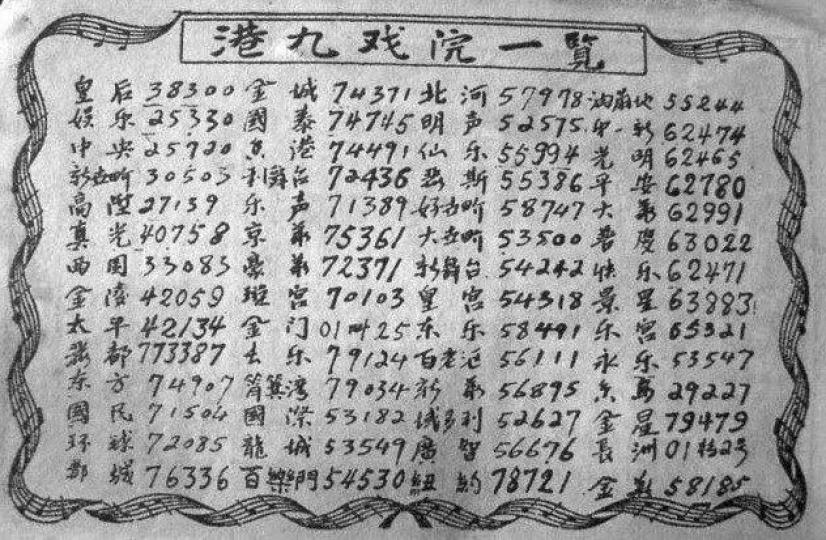 港九戏院一覧
皇后 38300 金城 74371 北河 57978 油麻地 55244
娱乐 25330 國泰 74745 明声 52575 新 62474
中央 25720 香港 74491 仙乐 55994 光明 62465
新世界 30503 利舞台 72436 斯 55386 平安 62780
高陞 27139 乐声 71389 好世界 58747 大华 62991
真光 40758 京华 75361 大世界 53500 普慶 63022
西園 33083 豪华 72371 新舞台 54242 快乐 62471
金陵 42059 璇宫 70103 皇宫 54318 景星 63883
太平 42134 金门 01叫25 东乐 58491 乐宫 65321
都 773387 乐 79124 百老汇 56111 永乐 53547
东方 74907 筲箕湾 79034 新华 56895 29227
國民 71504 國際 53182 域多利 52627 金星 79479
环球 72085 龍城 53549 廣智 56676 長洲 01 号
都城 76336 百樂門 54530 紐約 78721 金 58185